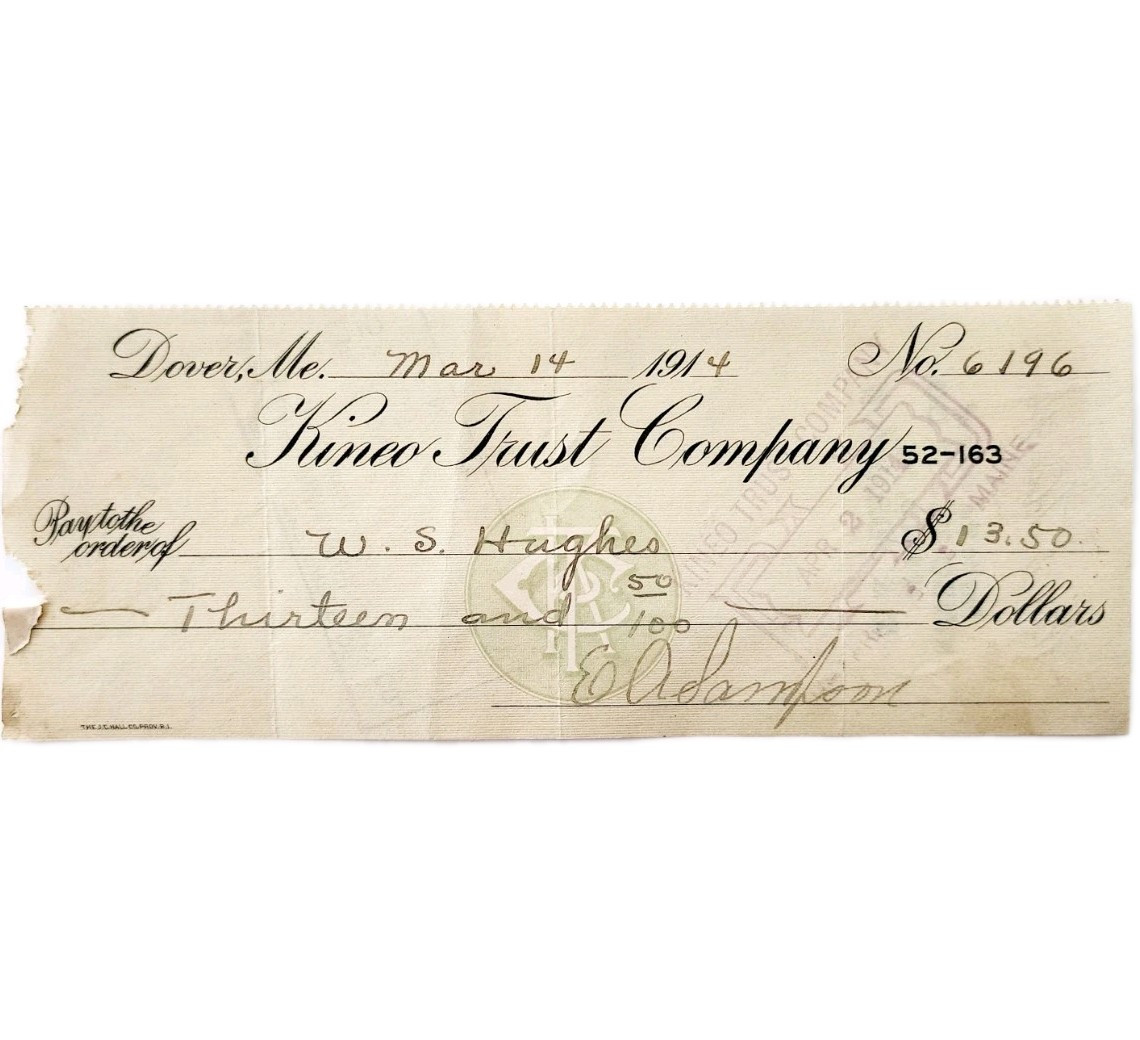 Dover, Me. Mar 14 1914 No. 6196
Kineo Trust Company 52-163
Pay to the
order of W. S. Hughes $ 13.50
Thirteen and 50/100 Dollars
E A Sampson
THE J.C. HALL CO. PROV. R.I.
KINEO TRUST COMPANY
APR 2 1914
MAINE